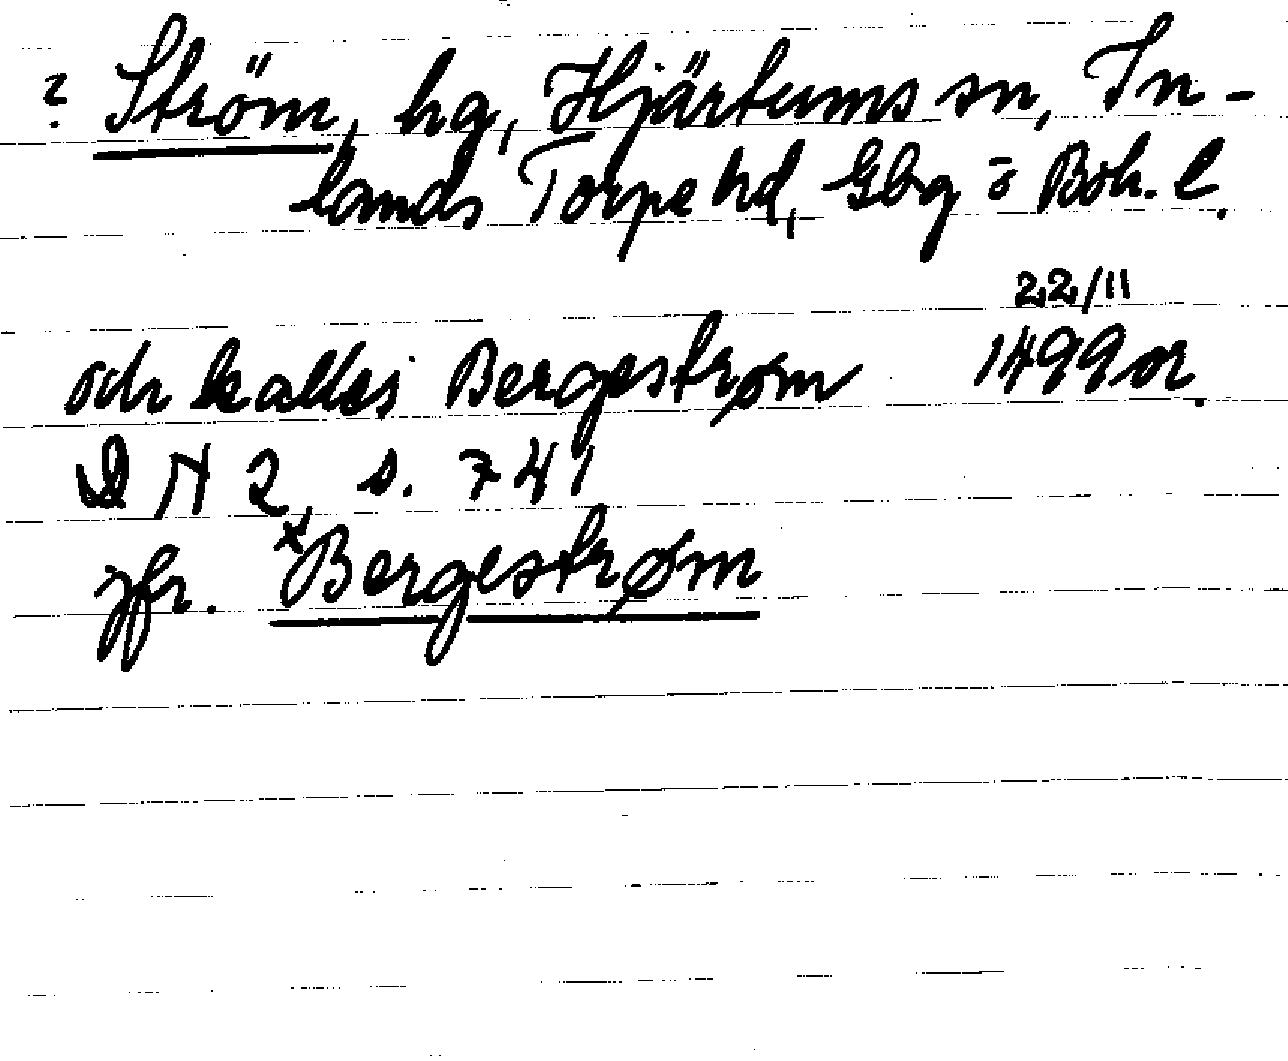 ? Ström, hg, Hjärtums sn, In-
lands Torpe hd, Gbg o Boh. l.
22/11
och kalles Bergestrøm 1499 or.
DN 2, s. 741
jfr. *Bergestrøm